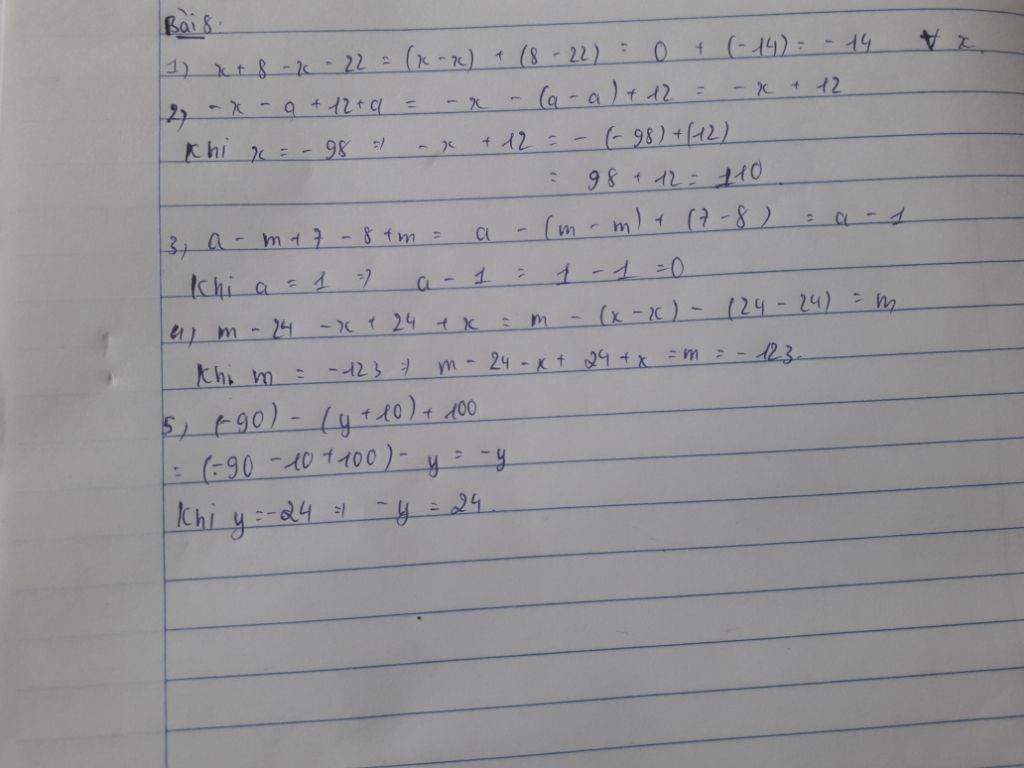 Bài 8:
1) x + 8 - x - 22 = (x - x) + (8 - 22) = 0 + (-14) = - 14 ∀ x.
2, - x - a + 12 + a = - x - (a - a) + 12 = - x + 12
Khi x = - 98 ⇒ - x + 12 = - (- 98) + (12)
= 98 + 12 = 110.
3, a - m + 7 - 8 + m = a - (m - m) + (7 - 8) = a - 1
Khi a = 1 ⇒ a - 1 = 1 - 1 = 0
4, m - 24 - x + 24 + x = m - (x - x) - (24 - 24) = m
Khi m = - 123 ⇒ m - 24 - x + 24 + x = m = - 123.
5, (-90) - (y + 10) + 100
= (-90 - 10 + 100) - y = -y
Khi y = -24 ⇒ - y = 24.